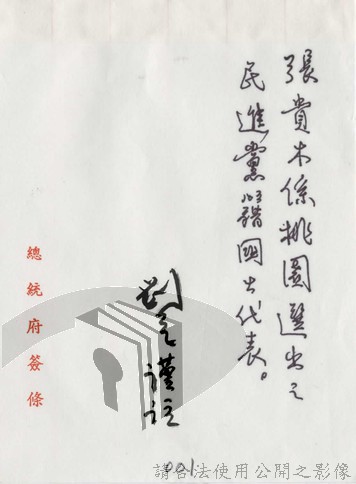 張貴木係桃園選出之
民進黨省籍國大代表。
劉
謹註
總統府簽條
001
請合法使用公開之影像